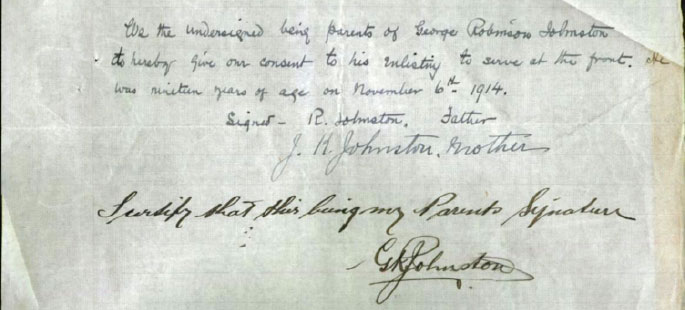 We the undersigned being parents of George Robinson Johnston
do hereby give our consent to his enlisting to serve at the front. He
was nineteen years of age on November 6th 1914.
Signed - R. Johnston. Father
J. H. Johnston. Mother
I certify that this being my Parents Signature
G R Johnston